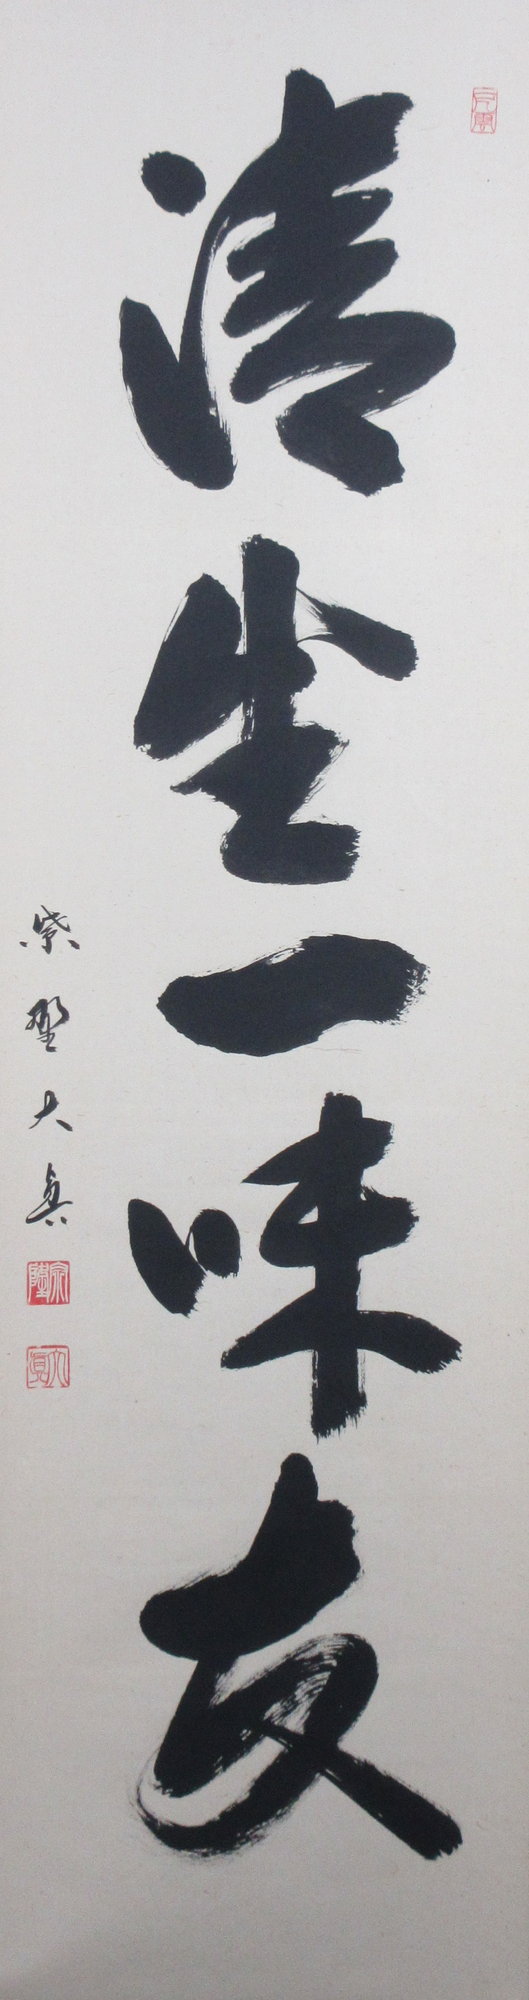 清坐一味友
紫野大真